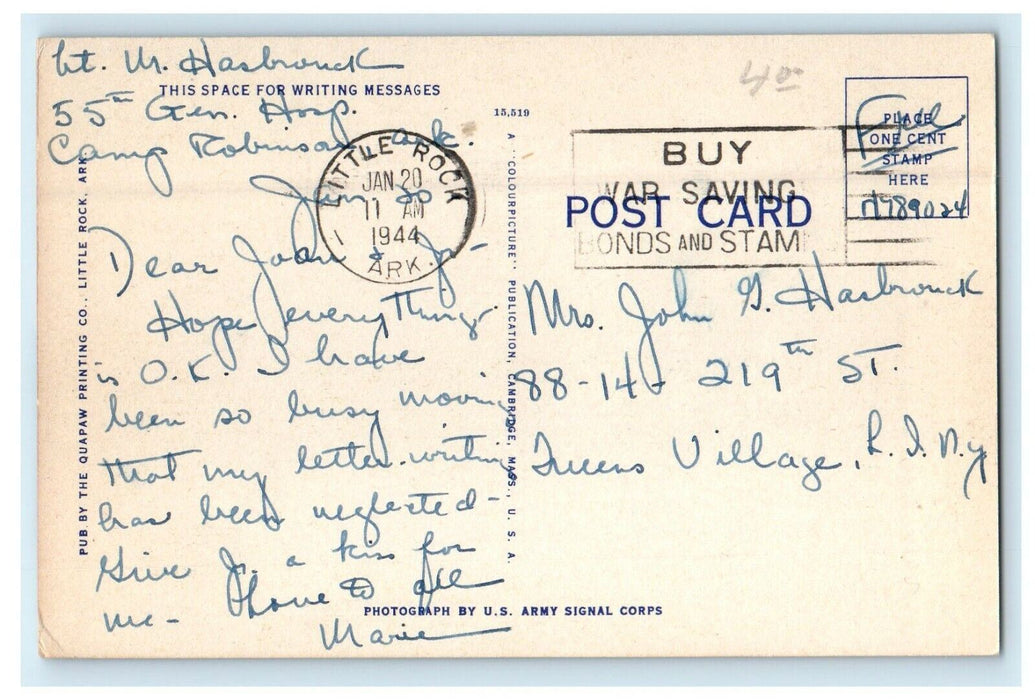 Lt. M. Hasbrouck
THIS SPACE FOR WRITING MESSAGES
55th Gen. Hosp.
Camp Robinson, Ark.
Jan 20
Dear Joan & Jr-
Hope everything
is O.K. I have
been so busy moving
that my letter writing
has been neglected-
Give Jr. a kiss for
me- Love to all
Marie
PUB. BY THE QUAPAW PRINTING CO., LITTLE ROCK, ARK.
15,519
A "COLOURPICTURE" PUBLICATION, CAMBRIDGE, MASS., U. S. A.
PHOTOGRAPH BY U.S. ARMY SIGNAL CORPS
LITTLE ROCK
JAN 20
11 AM
1944
ARK.
BUY
WAR SAVING
BONDS AND STAM
POST CARD
400
Free
PLACE
ONE CENT
STAMP
HERE
N789024
Mrs. John G. Hasbrouck
88-14- 219th ST.
Queens Village, L.I. N.Y